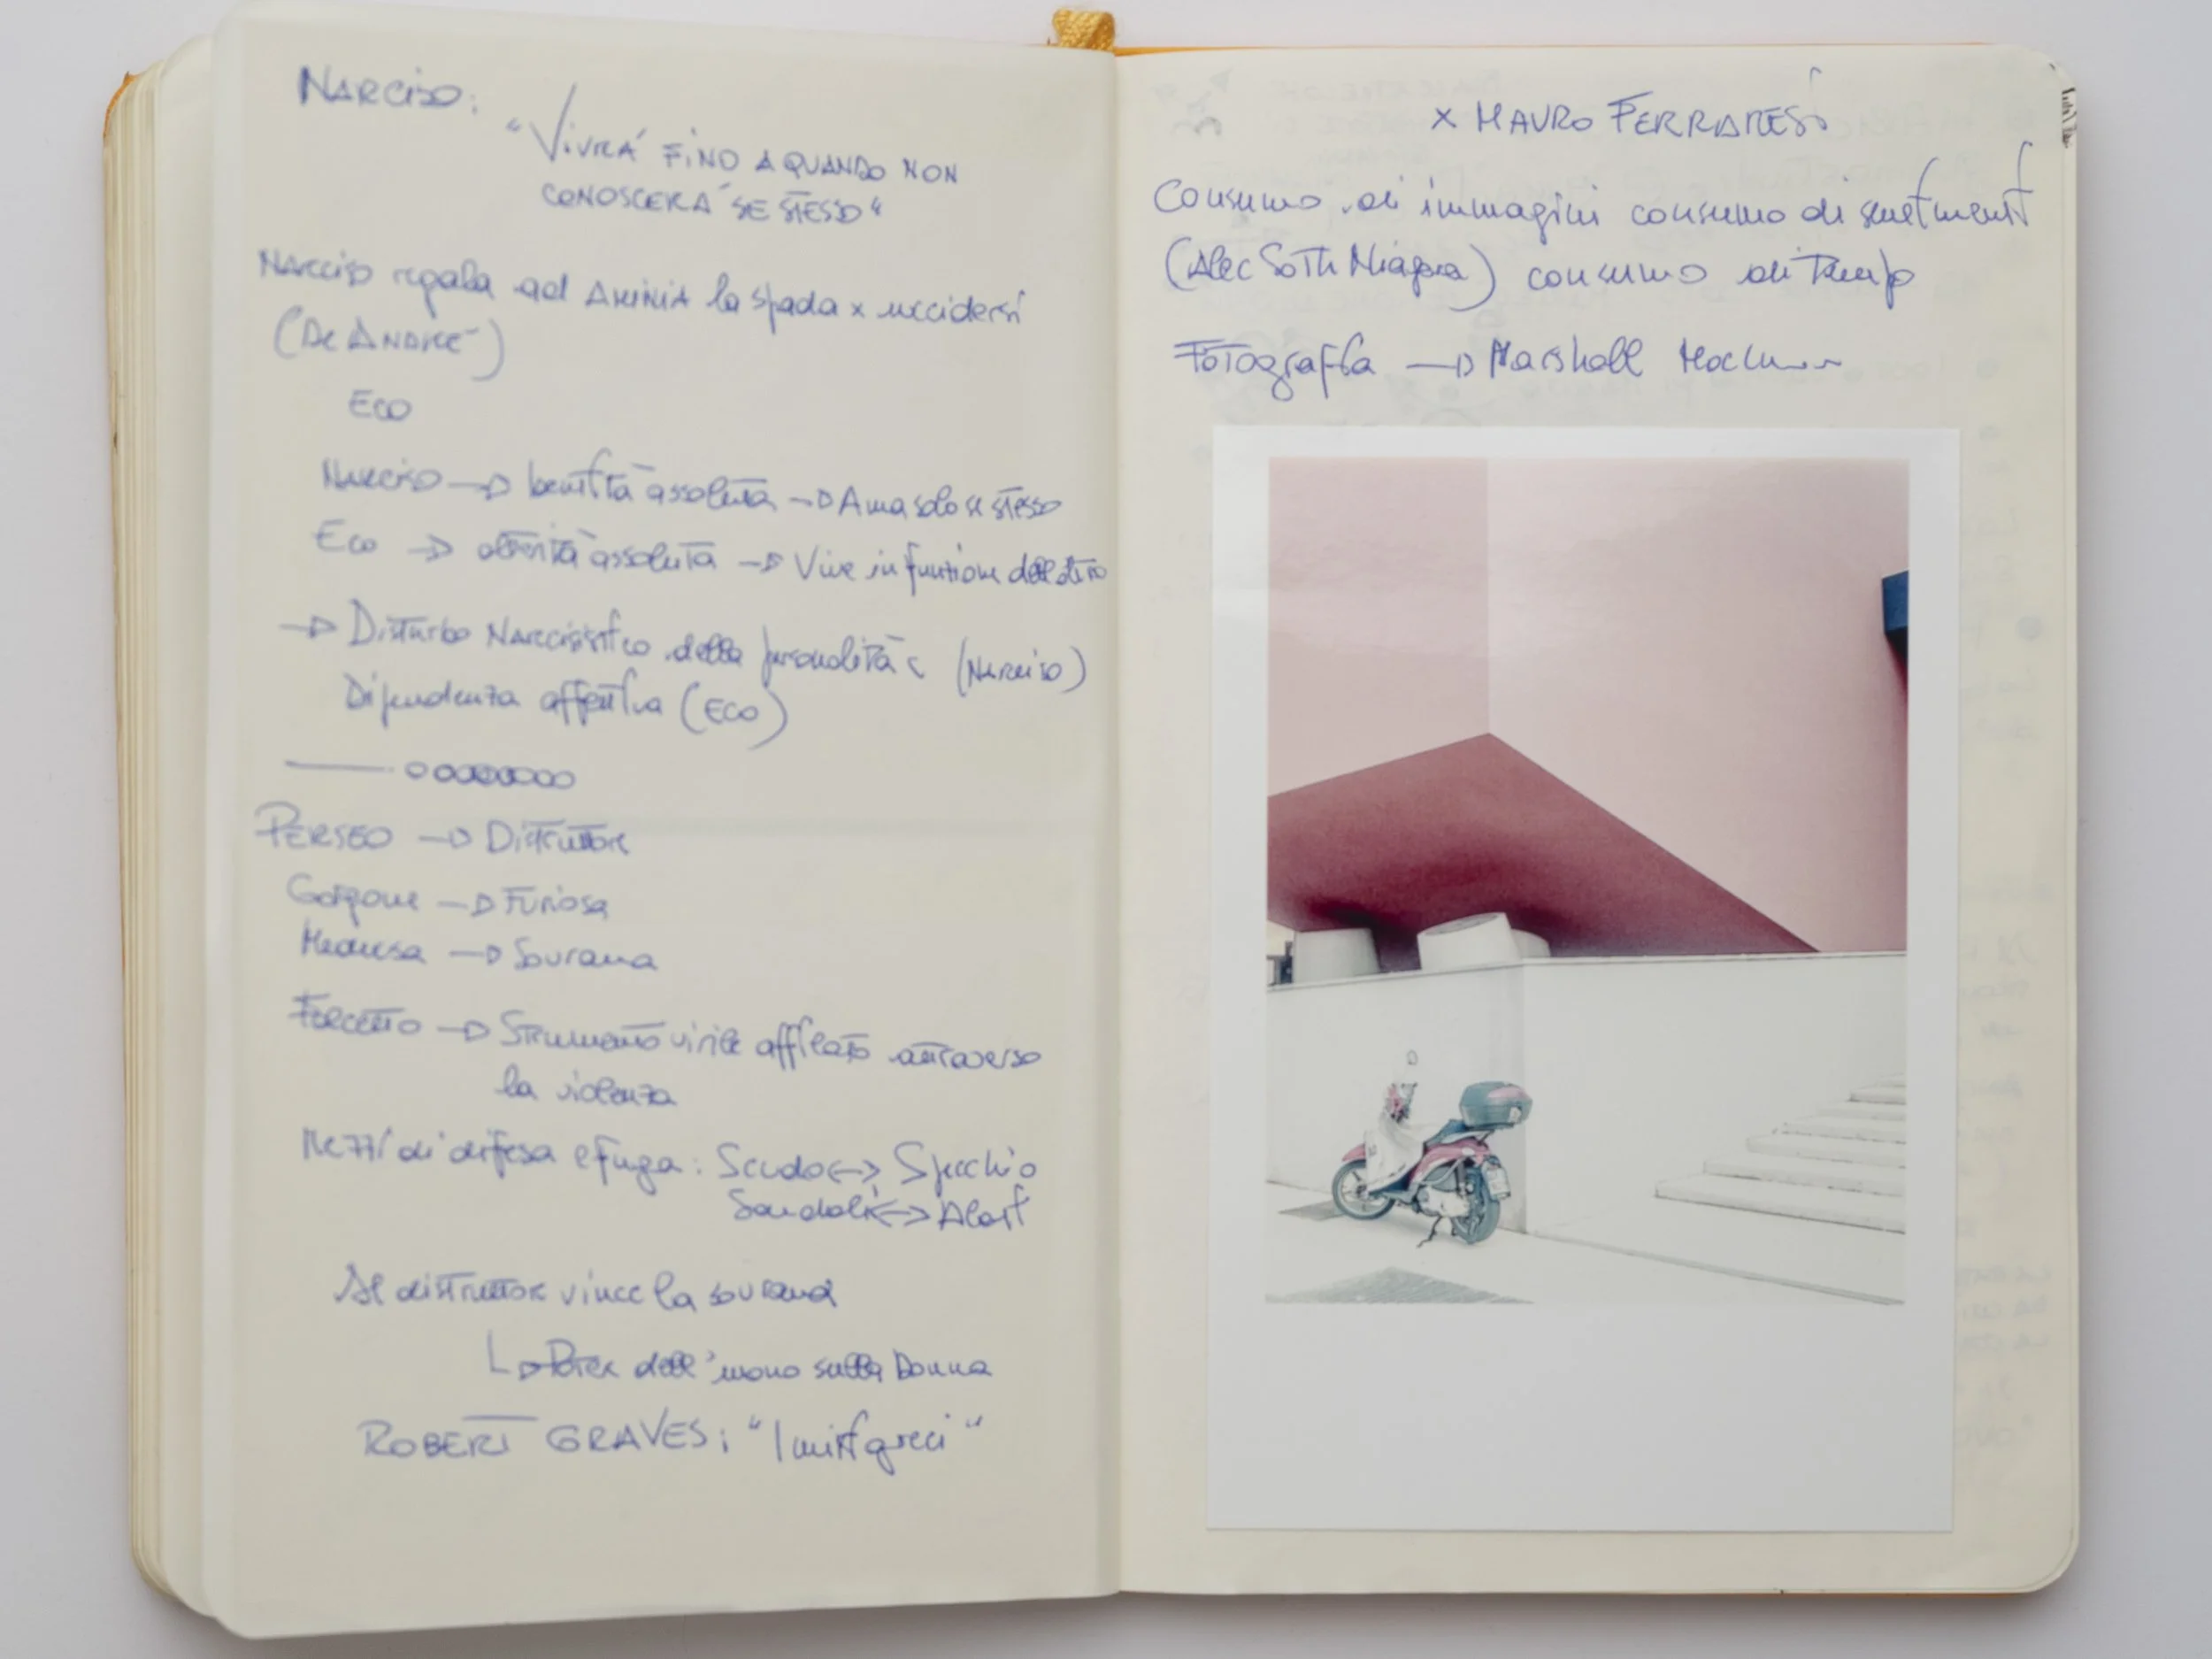 NARCISO:
"VIVRA' FINO A QUANDO NON
CONOSCERA' SE STESSO"
NARCISO regala ad AMINIA la spada x uccidersi
(DE ANDRE')
ECO
NARCISO → beltà assoluta → Ama solo se stesso
ECO → alterità assoluta → Vive in funzione dell'altro
→ Disturbo Narcisistico della personalità (NARCISO)
Dipendenza affettiva (ECO)
PERSEO → Distruttore
Gorgone → Furiosa
Medusa → Sovrana
Falcetto → Strumento virile affilato attraverso
la violenza
Mezzi di difesa e fuga: Scudo <-> Specchio
Sandali <-> Alati
Il distruttore vince la sovrana
↳ Potere dell'uomo sulla Donna
ROBERT GRAVES: "I miti greci"
x MAURO FERRARESI
Consumo di immagini consumo di sentimenti
(Alec Soth Niagara) consumo di Tempo
Fotografia → Marshall